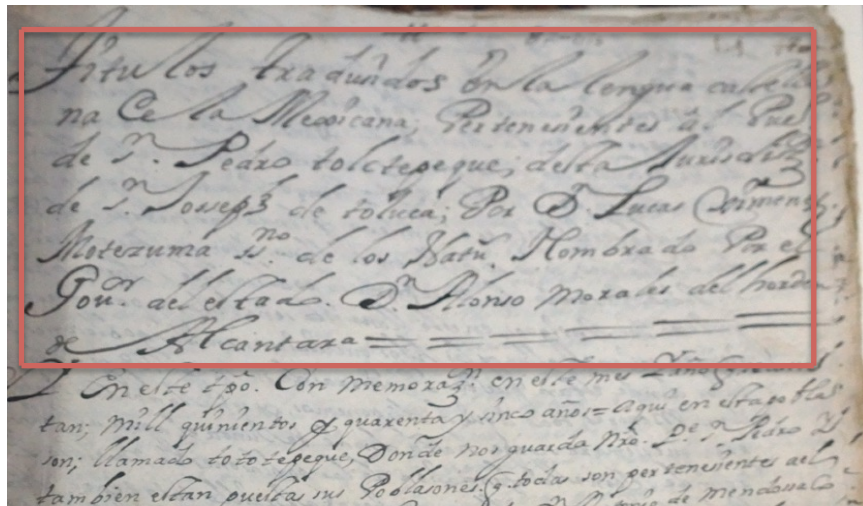 Titulos traduzidos en la lengua castella
na De la Mexicana; Pertenesientes al Pueo
de Sn. Pedro tolctepeque, desta Jurisdiz
de Sn. Josseph de toluca; Por Dn. Lucas Ximens
Motezuma sno. de los Natus. Nombrado Por el
Gour. del estado. Dn. Alonso Morales del horden
de Alcantara
En este tpo. Con memorazn. en este mes y año
tan; mill quinientos y quarenta y sinco años = aqui en esta pobla
son; llamado tototepeque, Donde nos guarda Nro. Pe. Sn. Pedro Y
tambien estan puestas sus Poblasones. y todas son pertenesientes ael
de Mendossa